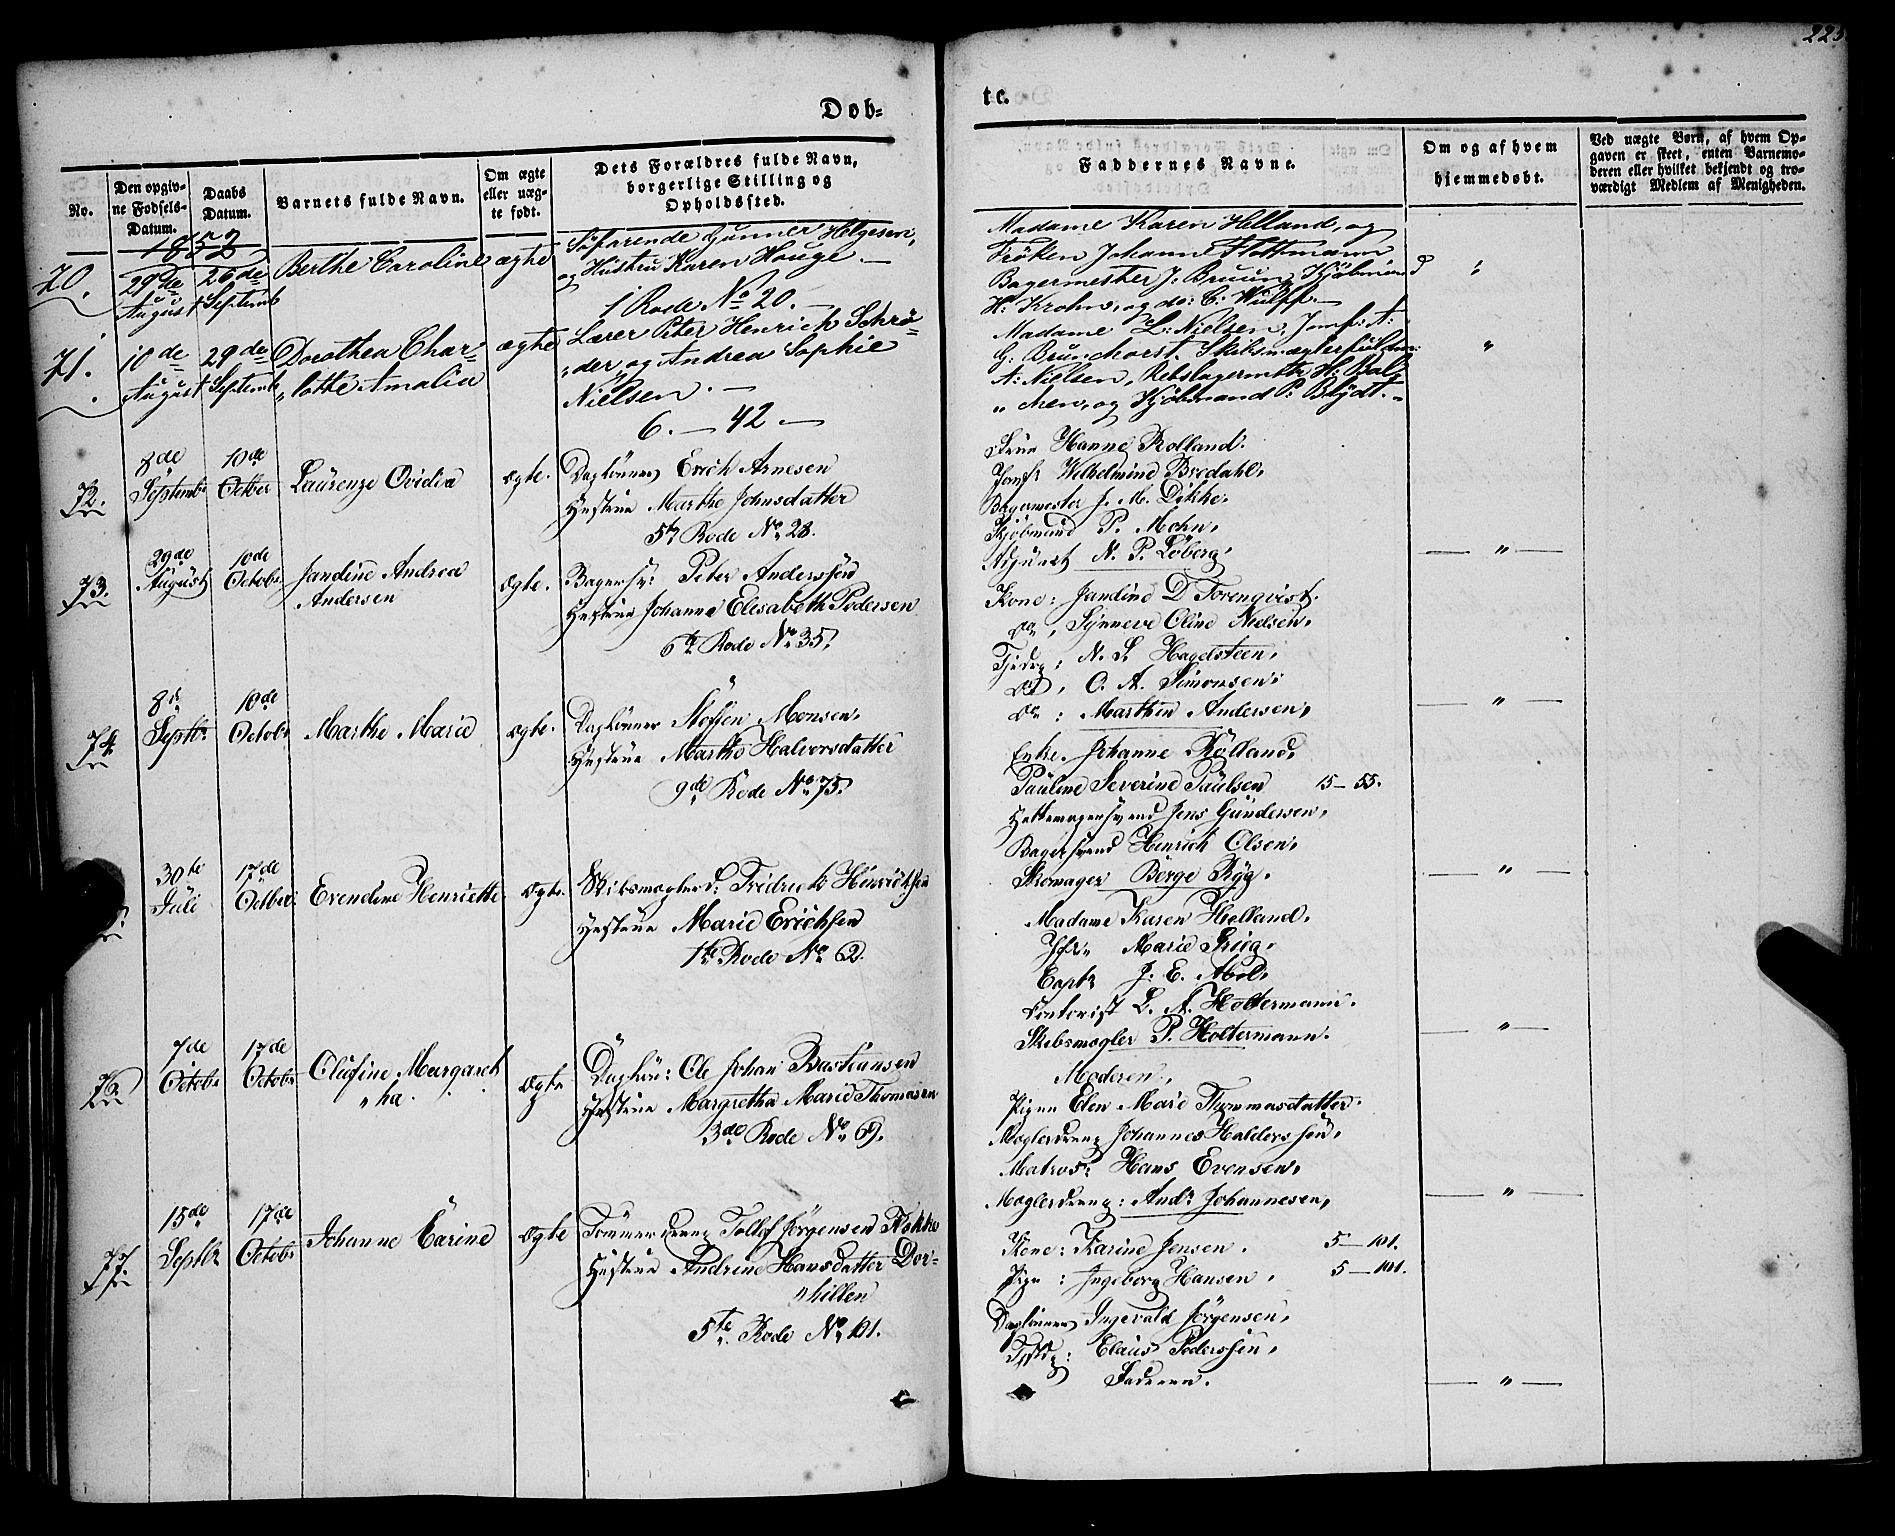 223
Døb-
te.
No.
Den opgiv-
ne Fødsels-
Datum.
Daabs
Datum.
Barnets fulde Navn.
Om ægte
eller uæg-
te født.
Dets Forældres fulde Navn,
borgerlige Stilling og
Opholdssted.
Faddernes Navne.
Om og af hvem
hjemmedøbt.
Ved uægte Børn, af hvem Op-
gaven er skeet, enten Barnemo-
deren eller hvilket bekjendt og tro-
værdigt Medlem af Menigheden.
1852
70.
29de
August
26de
Septemb
Berthe Caroline
ægte
Søfarende Gunner Helgesen,
og Hustru Karen Houge. —
1 Rode No 20. —
Madame Karen Helland, og
Frøken Johanne Flottmann
Bagermester J: Bruun, Kjøbmand
H: Krohn, og do: C: Wulff. —
71.
10de
August
29de
Septemb
Dorothea Char-
„lotte Amalia
ægte
Lærer Peter Henrich Schrø-
„der, og Andrea Sophie
Nielsen. —
6. — 42 —
Madame L: Nielsen, Jomf: A:
G: Brunchorst, Skibsmægler
A: Nielsen, Rebslagermstr H: Bal
„chen, og Kjøbmand P: Blydt. „
72.
8de
Septembr
10de
Octber
Laurenze Ovidia
ægte.
Daglønner Erich Arnesen
Hustrue Marthe Johnsdatter
5te Rode No 28.
Frue Hanne Rolland.
Jomfr Wilhelmine Bredahl,
Bagermester J. M. Dekke,
Kjøbmand P. Mohn,
Adjunct N. P. Løberg,
— „ —
73.
29de
August
10de
Octobr
Jandine Andrea
Andersen
ægte.
Bagersv: Peter Anderssen
Hustrue Johanne Elisabeth Pedersen
6te Rode No 35.
Kone: Jandine D Torenqvist.
do, Synneve Oline Nielsen,
N. S. Hagelsteen,
do, O. A. Simonsen,
do: Marthin Andersen,
— „ —
74.
8d
Septbr
10de
Octobr
Marthe Marie
ægte.
Daglønner Steffen Monsen,
Hustrue Marthe Halvorsdatter
9de Rode No 75.
Enke. Johanne Rolland,
Pauline Severine Paulsen 15 — 55.
Hattemagersvend Jens Gundersen,
Bagersvend Henrich Olsen,
Skomager Børge Ryg.
— „ —
30te
Juli
17de
Octber
Evendine Henriette
ægte.
Skibsmægler Fredrich Hinrichsen
Hustrue Marie Erichsen
1te Rode No 2.
Madame Karen Helland.
Jfr Marie Krüg,
Captn J. E. Mod,
Contorist L. A. Holtermann.
Skibsmægler P. Holtermann.
— „ —
76.
7de
Octobr
17de
Octobr
Olufine Margareth
„ha.
ægte
Dagløn: Ole Johan Bastiansen
Hustrue Margretha Marie Thomasen
3de Rode No 69.
Moderen,
Pigen Elen Marie Thommasdatter.
Mæglerdreng Johannes Halderssen,
Matros: Hans Evensen,
Mæglerdreng: Andr Johannesen,
— „ —
77.
15de
Septbr
17de
Octobr
Johanne Carine
ægte
Tømmerdreng Tollef Jørgensen
Hustrue Andrine Hansdatter Dor-
„hillen
5te Rode No 101.
Kone: Karine Jensen. 5 — 101.
Pige: Ingeborg Hansen, 5 — 101.
Daglønner Ingevald Jørgensen,
Claus Pederssen,
Faderen.
— „ —